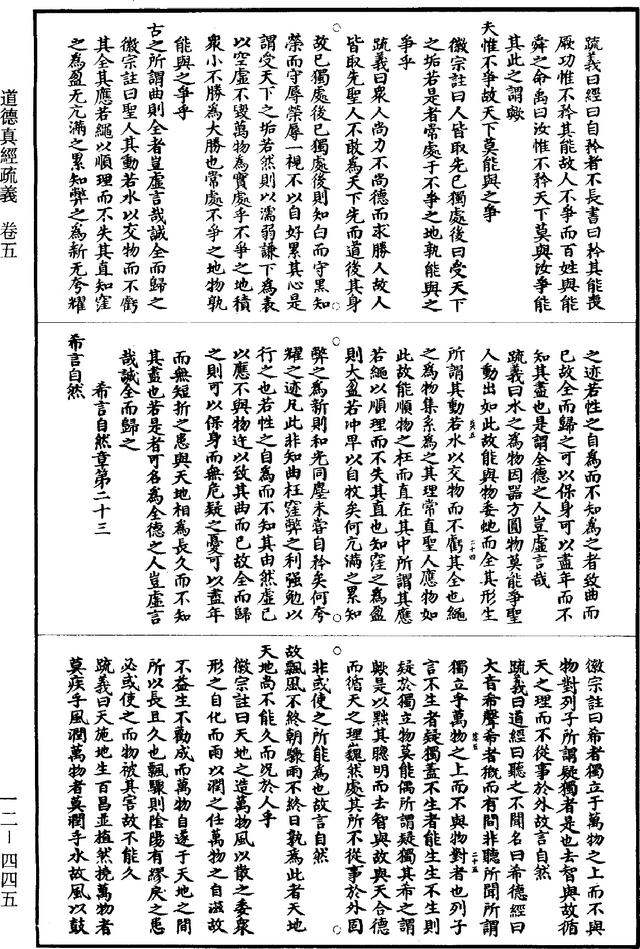 道德真經疏義　卷五
疏義曰經曰自矜者不長書曰矜其能喪
厥功惟不矜其能故人不爭而百姓與能
舜之命禹曰汝惟不矜天下莫與汝爭能
其此之謂歟
夫惟不爭故天下莫能與之爭
徽宗註曰人皆取先己獨處後曰受天下
之垢若是者常處于不爭之地孰能與之
爭乎
疏義曰衆人尚力不尚德而求勝人故人
皆取先聖人不敢為天下先而道後其身
故己獨處後己獨處後則知白而守黑知
榮而守辱榮辱一視不以自好累其心是
謂受天下之垢若然則以濡弱謙下為表
以空虛不毀萬物為實處乎不爭之地積
衆小不勝為大勝也常處不爭之地物孰
能與之爭乎
古之所謂曲則全者豈虛言哉誠全而歸之
徽宗註曰聖人其動若水以交物而不虧
其全其應若繩以順理而不失其直知窪
之為盈无亢滿之累知弊之為新无夸耀
之迹若性之自為而不知為之者致曲而
已故全而歸之可以保身可以盡年而不
知其盡也是謂全德之人豈虛言哉
疏義曰水之為物因器方圓物莫能爭聖
人動出如此故能與物委虵而全其形生
所謂其動若水以交物而不虧其全也繩
之為物集糸為之其理常直聖人應物如
此故能順物之枉而直在其中所謂其應
若繩以順理而不失其直也知窪之為盈
則大盈若冲卑以自牧矣何亢滿之累知
弊之為新則和光同塵未甞自矜矣何夸
耀之迹凡此非知曲枉窪弊之利強勉以
行之也若性之自為而不知其由然虛己
以應不與物迕以致其曲而已故全而歸
之則可以保身而無危疑之憂可以盡年
而無短折之患與天地相為長久而不知
其盡也若是者可名為全德之人豈虛言
哉誠全而歸之
希言自然章第二十三
希言自然
徽宗註曰希者獨立于萬物之上而不與
物對列子所謂疑獨者是也去智與故循
天之理而不從事於外故言自然
疏義曰道經曰聽之不聞名曰希德經曰
大音希聲希者微而有間非聽所聞所謂
獨立乎萬物之上而不與物對者也列子
言不生者疑獨蓋不生者能生生不生則
疑於獨立物莫能偶所謂疑獨其希之謂
歟是以黜其聰明而去智與故與天合德
而循天之理巍然處其所不從事於外固
非或使之所能為也故言自然
故飄風不終朝驟雨不終日孰為此者天地
天地尚不能久而況於人乎
徽宗註曰天地之造萬物風以散之委衆
形之自化而雨以潤之任萬物之自滋故
不益生不勸成而萬物自遂于天地之間
所以長且久也飄驟則陰陽有繆戾之患
必或使之而物被其害故不能久
疏義曰天施地生百昌並植然撓萬物者
莫疾乎風潤萬物者莫潤乎水故風以鼓
一二—四四五